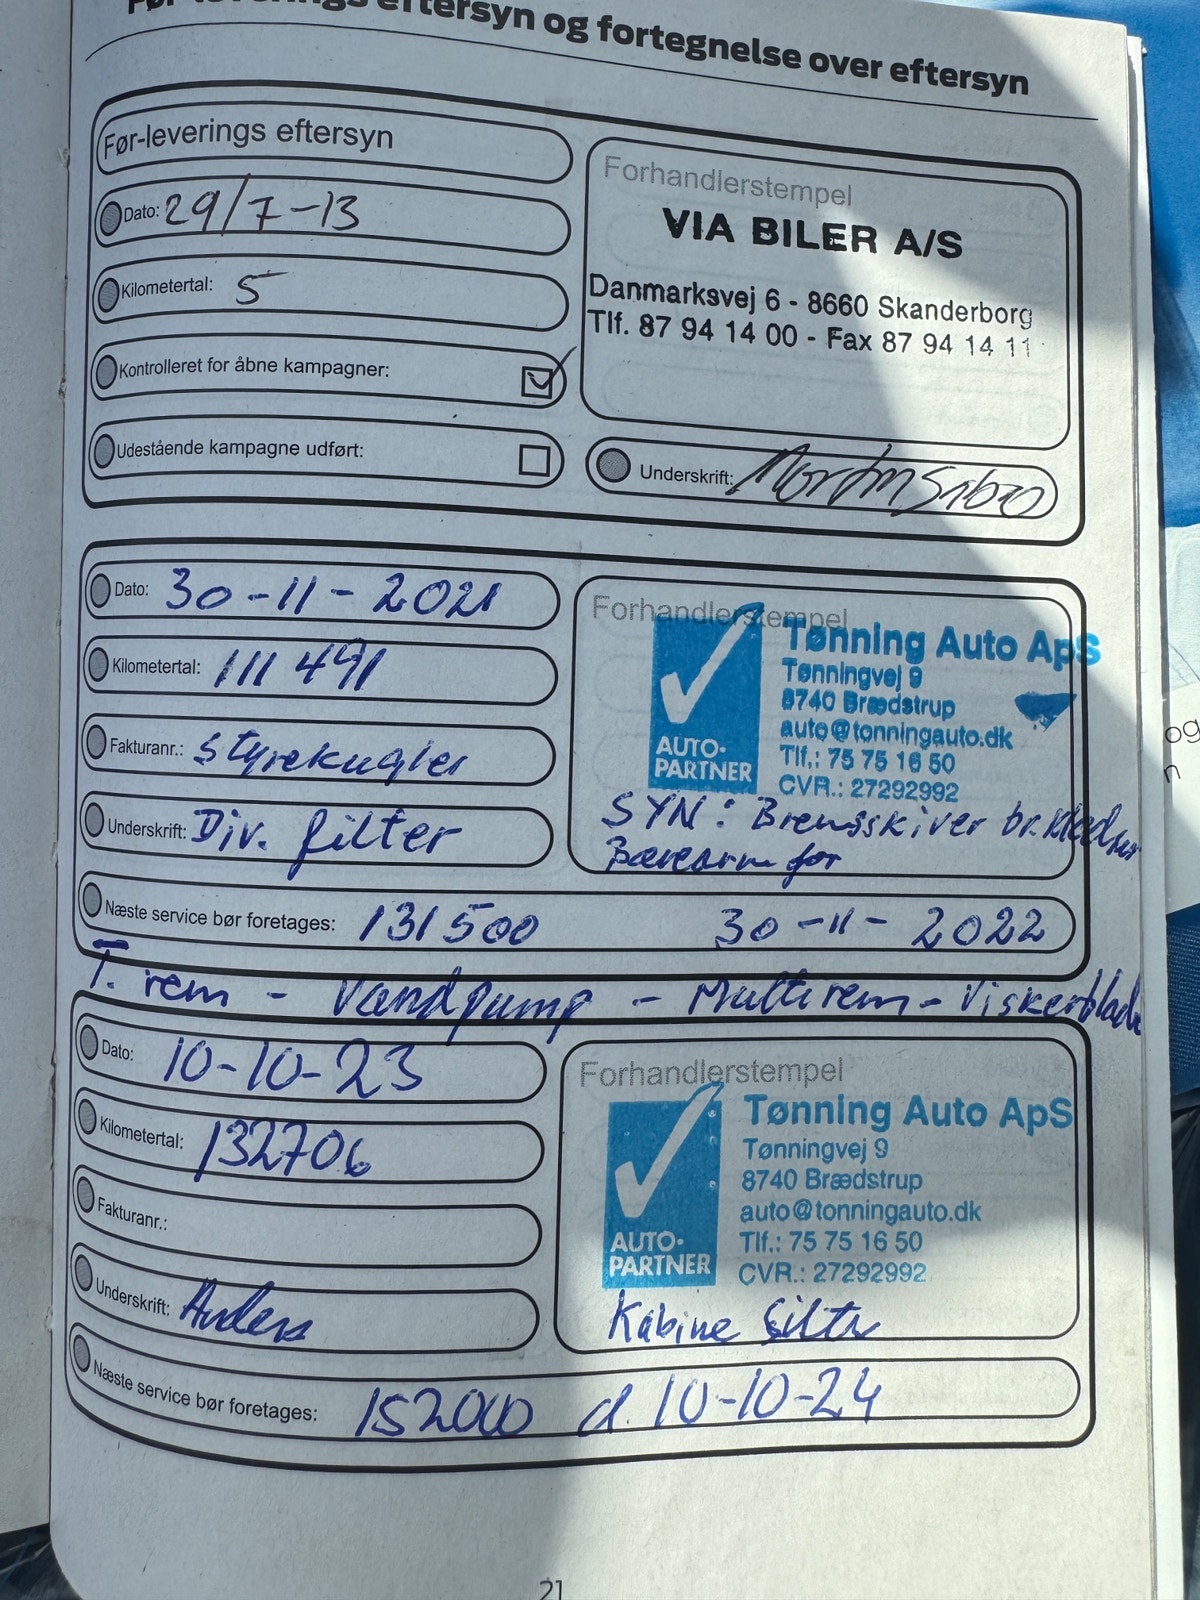 Før-leverings eftersyn og fortegnelse over eftersyn
Før-leverings eftersyn
Dato: 29/7-13
Kilometertal: 5
Kontrolleret for åbne kampagner:
Udestående kampagne udført:
Forhandlerstempel
VIA BILER A/S
Danmarksvej 6 - 8660 Skanderborg
Tlf. 87 94 14 00 - Fax 87 94 14 11
Underskrift:
Dato: 30-11-2021
Kilometertal: 111 491
Fakturanr.: Styrekugler
Underskrift: Div. filter
Forhandlerstempel
Tønning Auto ApS
Tønningvej 9
8740 Brædstrup
auto@tonningauto.dk
Tlf.: 75 75 16 50
CVR.: 27292992
AUTO-
PARTNER
SYN: Bremseskiver
Bærearm for
Næste service bør foretages: 131500 30-11-2022
T. rem - Vandpump - Multirem - Viskerblade
Dato: 10-10-23
Kilometertal: 132706
Fakturanr.:
Underskrift: Anders
Forhandlerstempel
Tønning Auto ApS
Tønningvej 9
8740 Brædstrup
auto@tonningauto.dk
Tlf.: 75 75 16 50
CVR.: 27292992
AUTO-
PARTNER
Kabine filter
Næste service bør foretages: 152000 d. 10-10-24
21
og
n